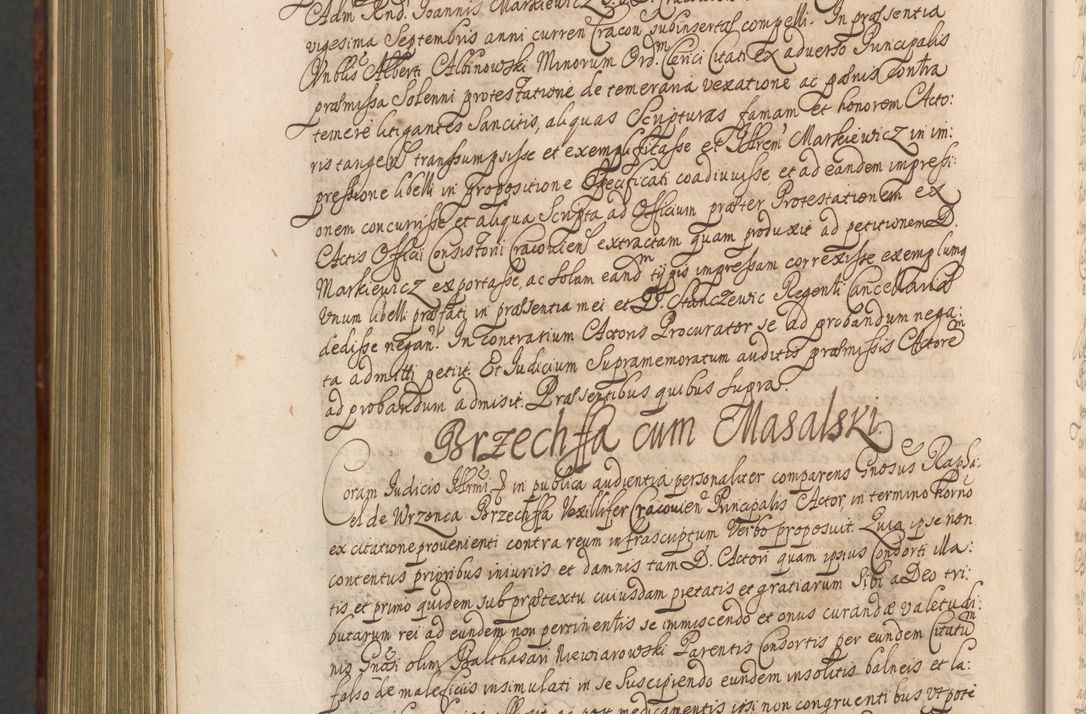 Adm Rnd Joannis Markiewicz
vigesima Septembris anni curren Cracon subinsertas compelli. In præsentia
Nnblis Alberti Albinowski Minorum Ord. Clerici Citati ex adverso Principalis
præmissa Solenni protestatione de temeraria vexatione ac pænis contra
temere litigantes Sancitis, aliquas Scripturas famam et honorem Acto:
ris tangen transsumpsisse et exemplificasse et Illrem Markiewicz in im:
pressione libelli in propositione specificati coadiuuisse, et ad eandem impressi:
onem concurrisse et aliqua Scripta ad Officium præter Protestationem ex
Actis Officii Consistorii Cracovien extractam quam produxit ad petitionem D.
Markiewicz exportasse, ac solum eand typis impressam correxisse exemplumq
unum libelli præfati in præsentia mei et D. Stanczewic Regenti Cancellariæ
dedisse negan. In contrarium Actoris Procurator se ad probandum nega:
ta admitti petiit. Et Judicium Supramemoratum auditis præmissis Actore
ad probandum admisit. Præsentibus quibus supra.
Brzechffa cum Masalski
Coram Judicio Illrmi in publica audientia personaliter comparens Gnosus Rapha:
el de Wrzonca Brzechffa Vexillifer Cracovien Principalis Actor, in termino horno
ex citatione provenienti contra reum infrascriptum Verbo proposuit. Quia ipse non
contentus prioribus iniuriis et damnis tam D. Actori quam ipsius Consorti illa:
tis et primo quidem sub prætextu cuiusdam pietatis et gratiarum sibi a Deo tri:
butarum rei ad eundem non pertinentis se immiscendo et onus curandæ valetudi:
nis Gnosi olim Balthasari Niewiarowski Parentis Consortis per eundem Citatu
falso de maleficiis insimulati in se suscipiendo eundem insolitis balneis et la:
medicamentis ipsi non congruentibus ut poti